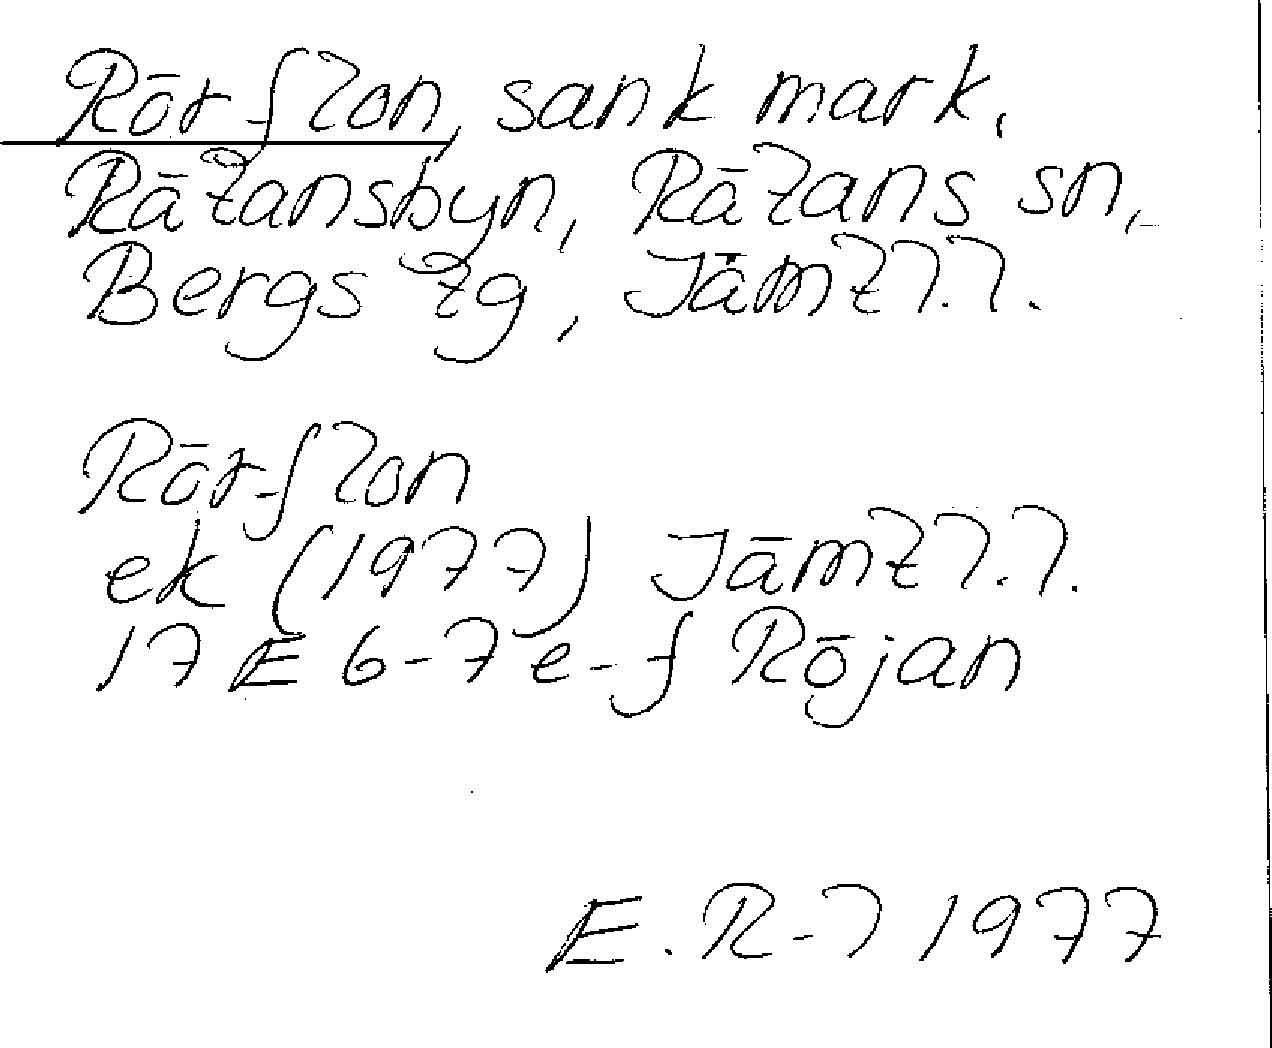 Rörflon, sank mark,
Rätansbyn, Rätans sn,
Bergs tg, Jämtl.l.
Rörflon
ek (1977) Jämtl.l.
17E 6-7e-f Röjan
E. R-l 1977